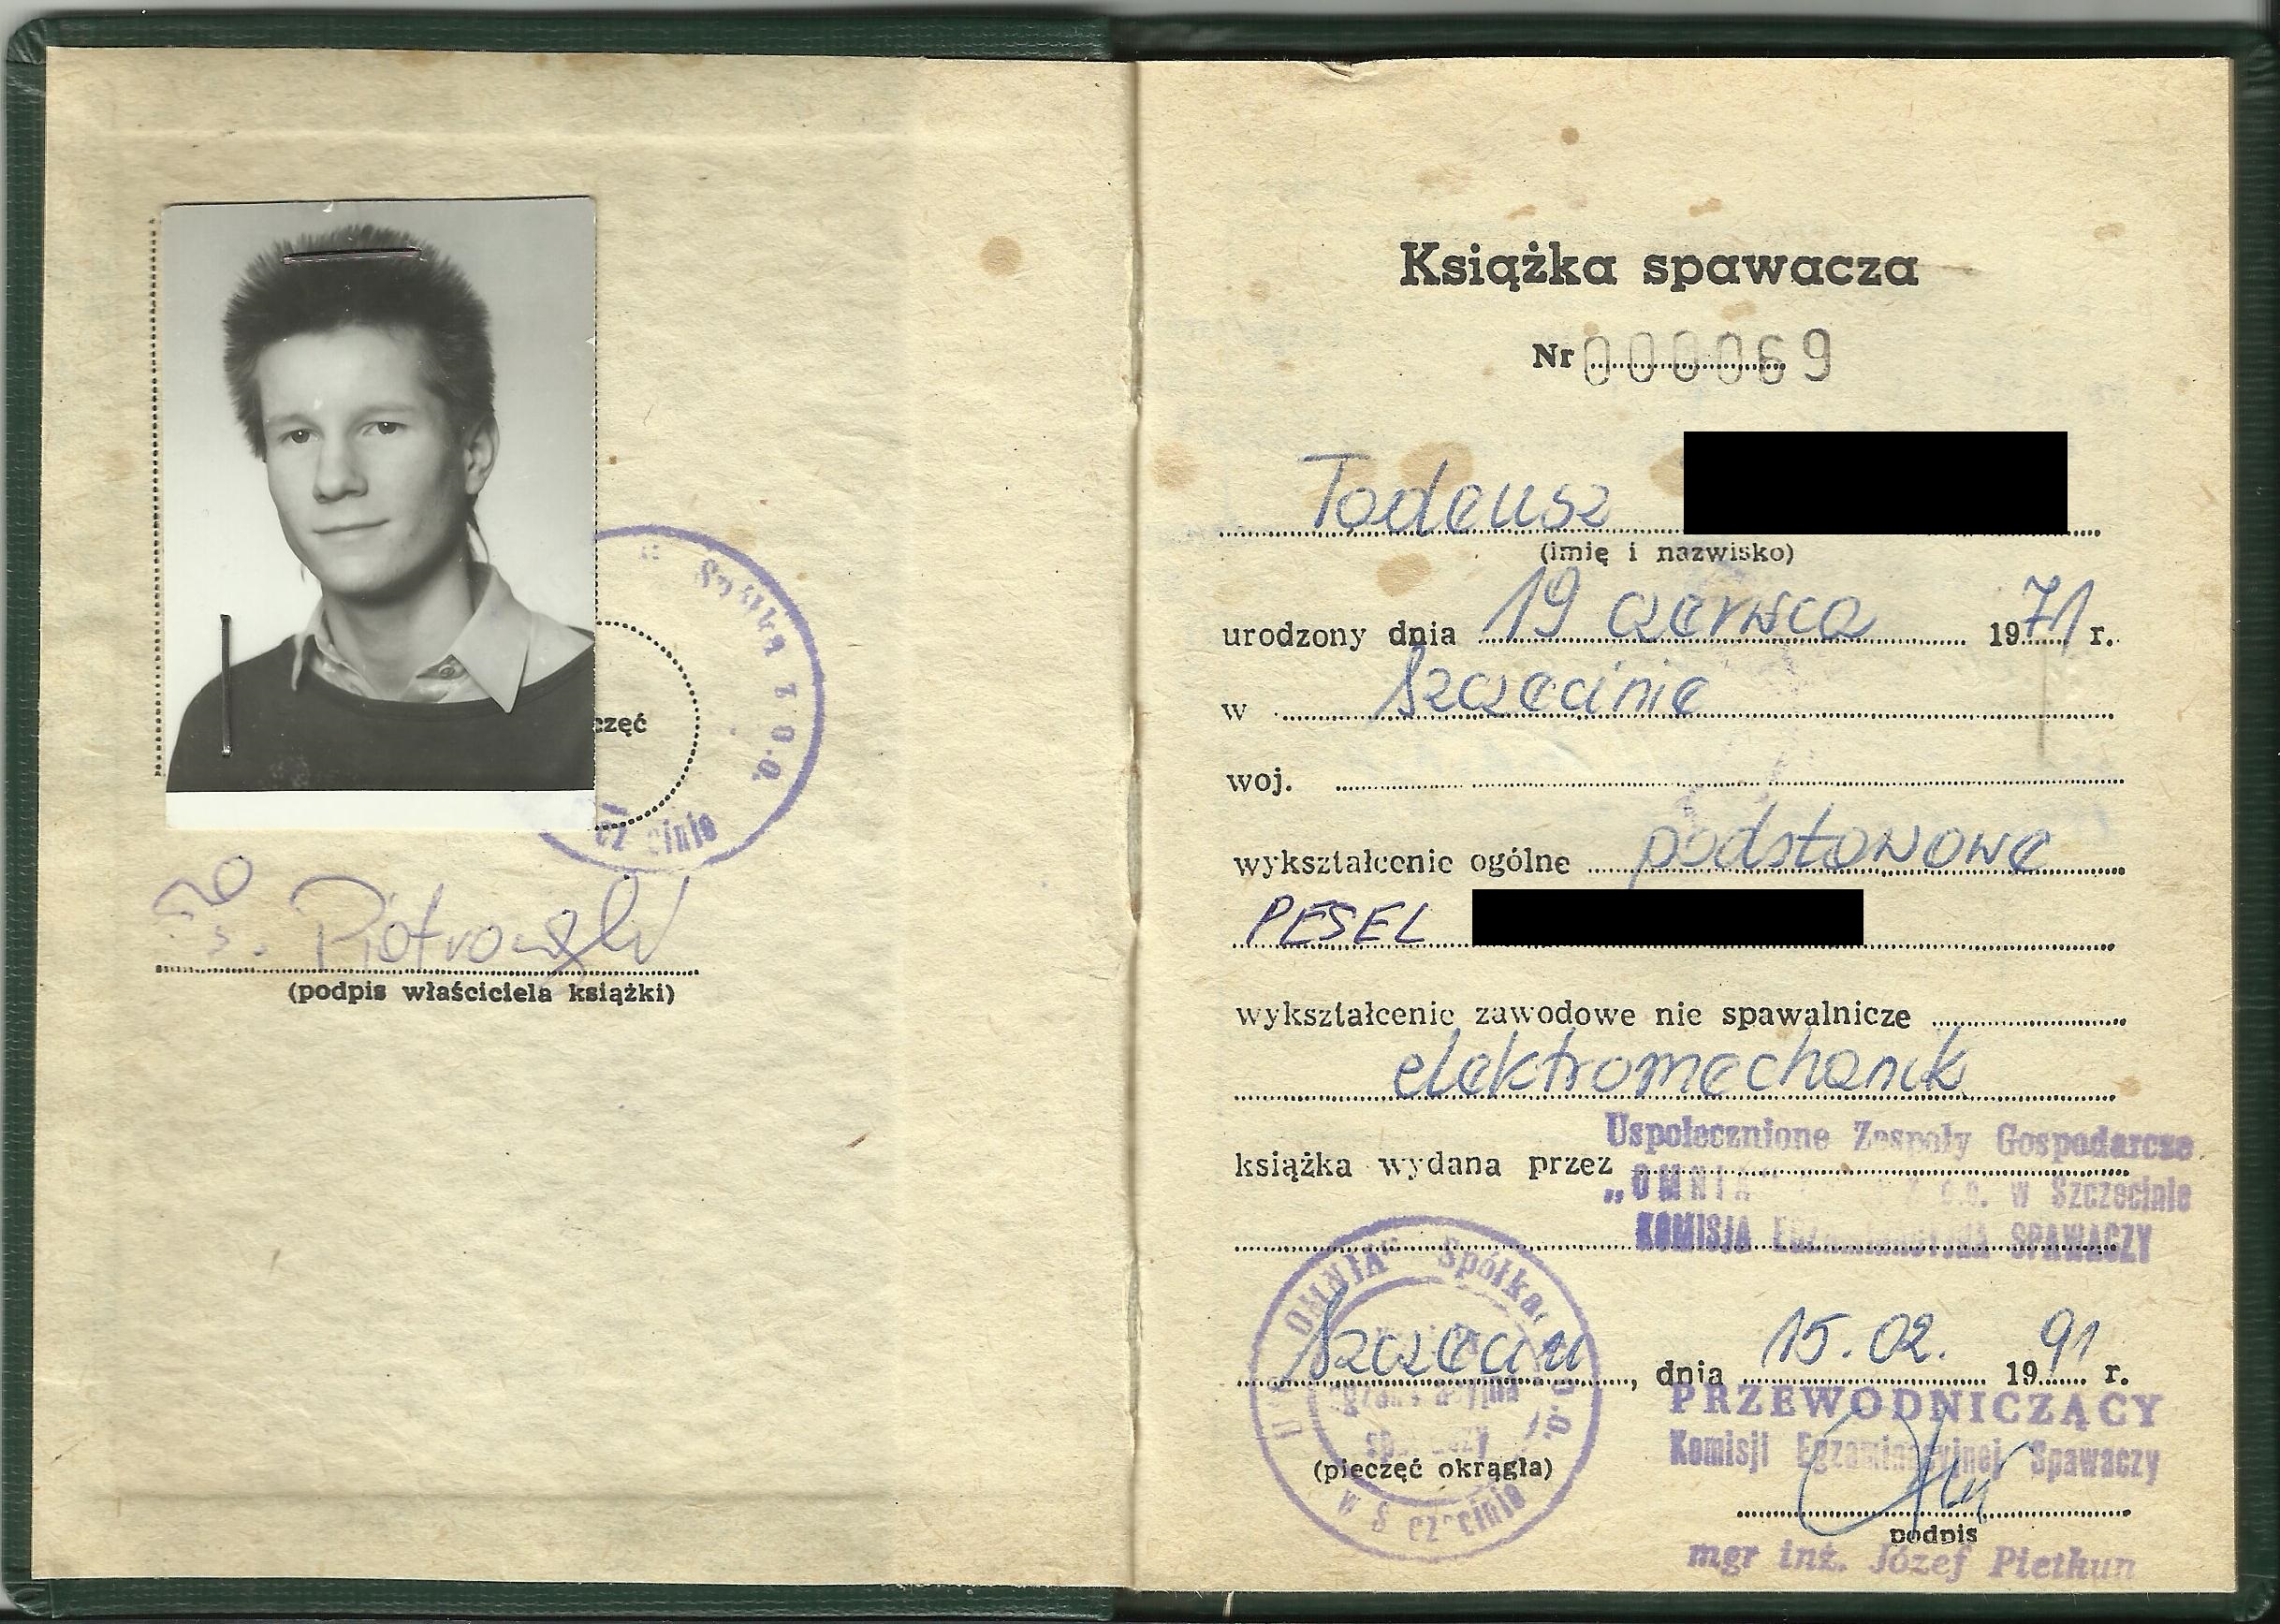 częć
Spółka z o.o.
Piotrowski
(podpis właściciela książki)
Książka spawacza
Nr 000069
Tadeusz
(imię i nazwisko)
urodzony dnia 19 czerwca 1971 r.
w Szczecinie
woj.
wykształcenie ogólne podstawowe
PESEL
wykształcenie zawodowe nie spawalnicze
elektromechanik
Uspołecznione Zespoły Gospodarcze
książka wydana przez
„OMNIA" z o.o. w Szczecinie
KOMISJA EGZAMINACYJNA SPAWACZY
OMNIA" Spółka
Szczecin, dnia 15.02. 1991 r.
PRZEWODNICZĄCY
Komisji Egzaminacyjnej Spawaczy
(pieczęć okrągła)
w Szczecinie
podpis
mgr inż. Józef Pietkun